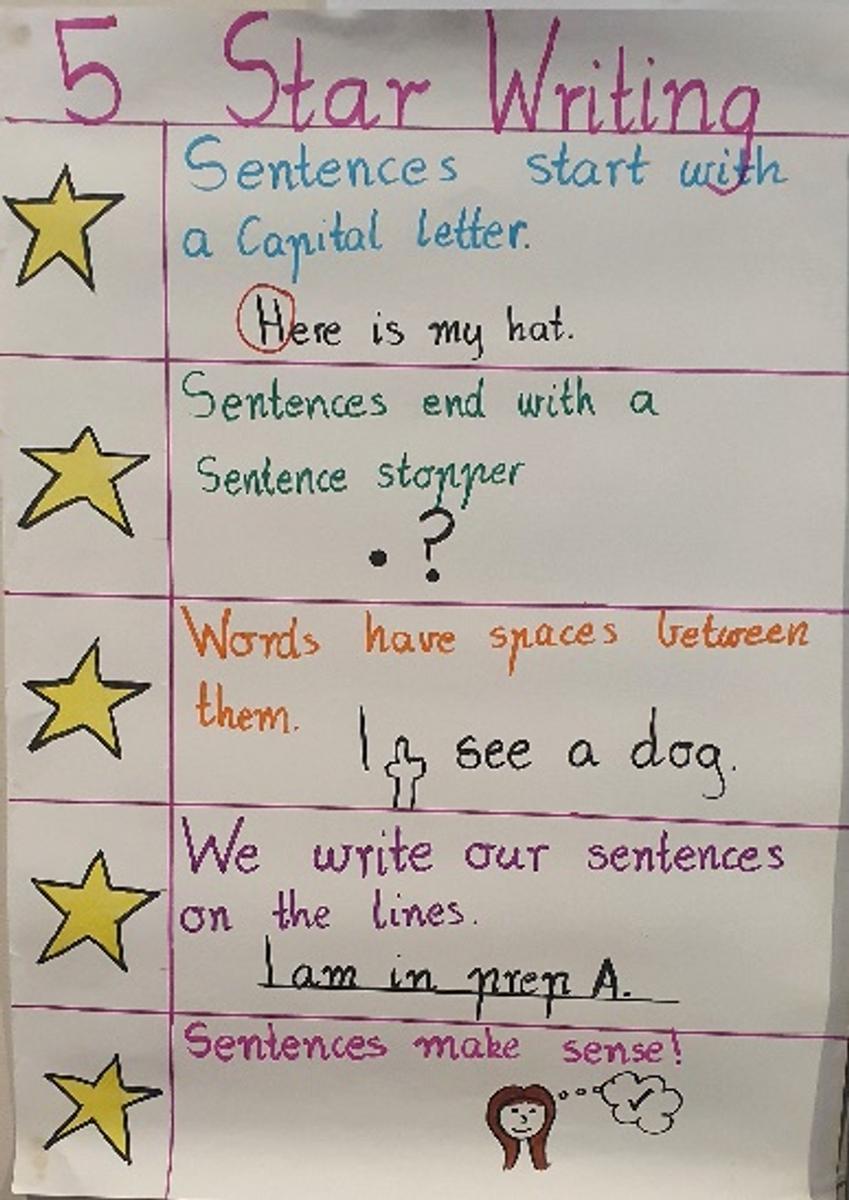 5 Star Writing
Sentences start with
a Capital letter.
Here is my hat.
Sentences end with a
Sentence stopper
. ?
Words have spaces between
them.
I see a dog.
We write our sentences
on the lines.
I am in prep A.
Sentences make sense!